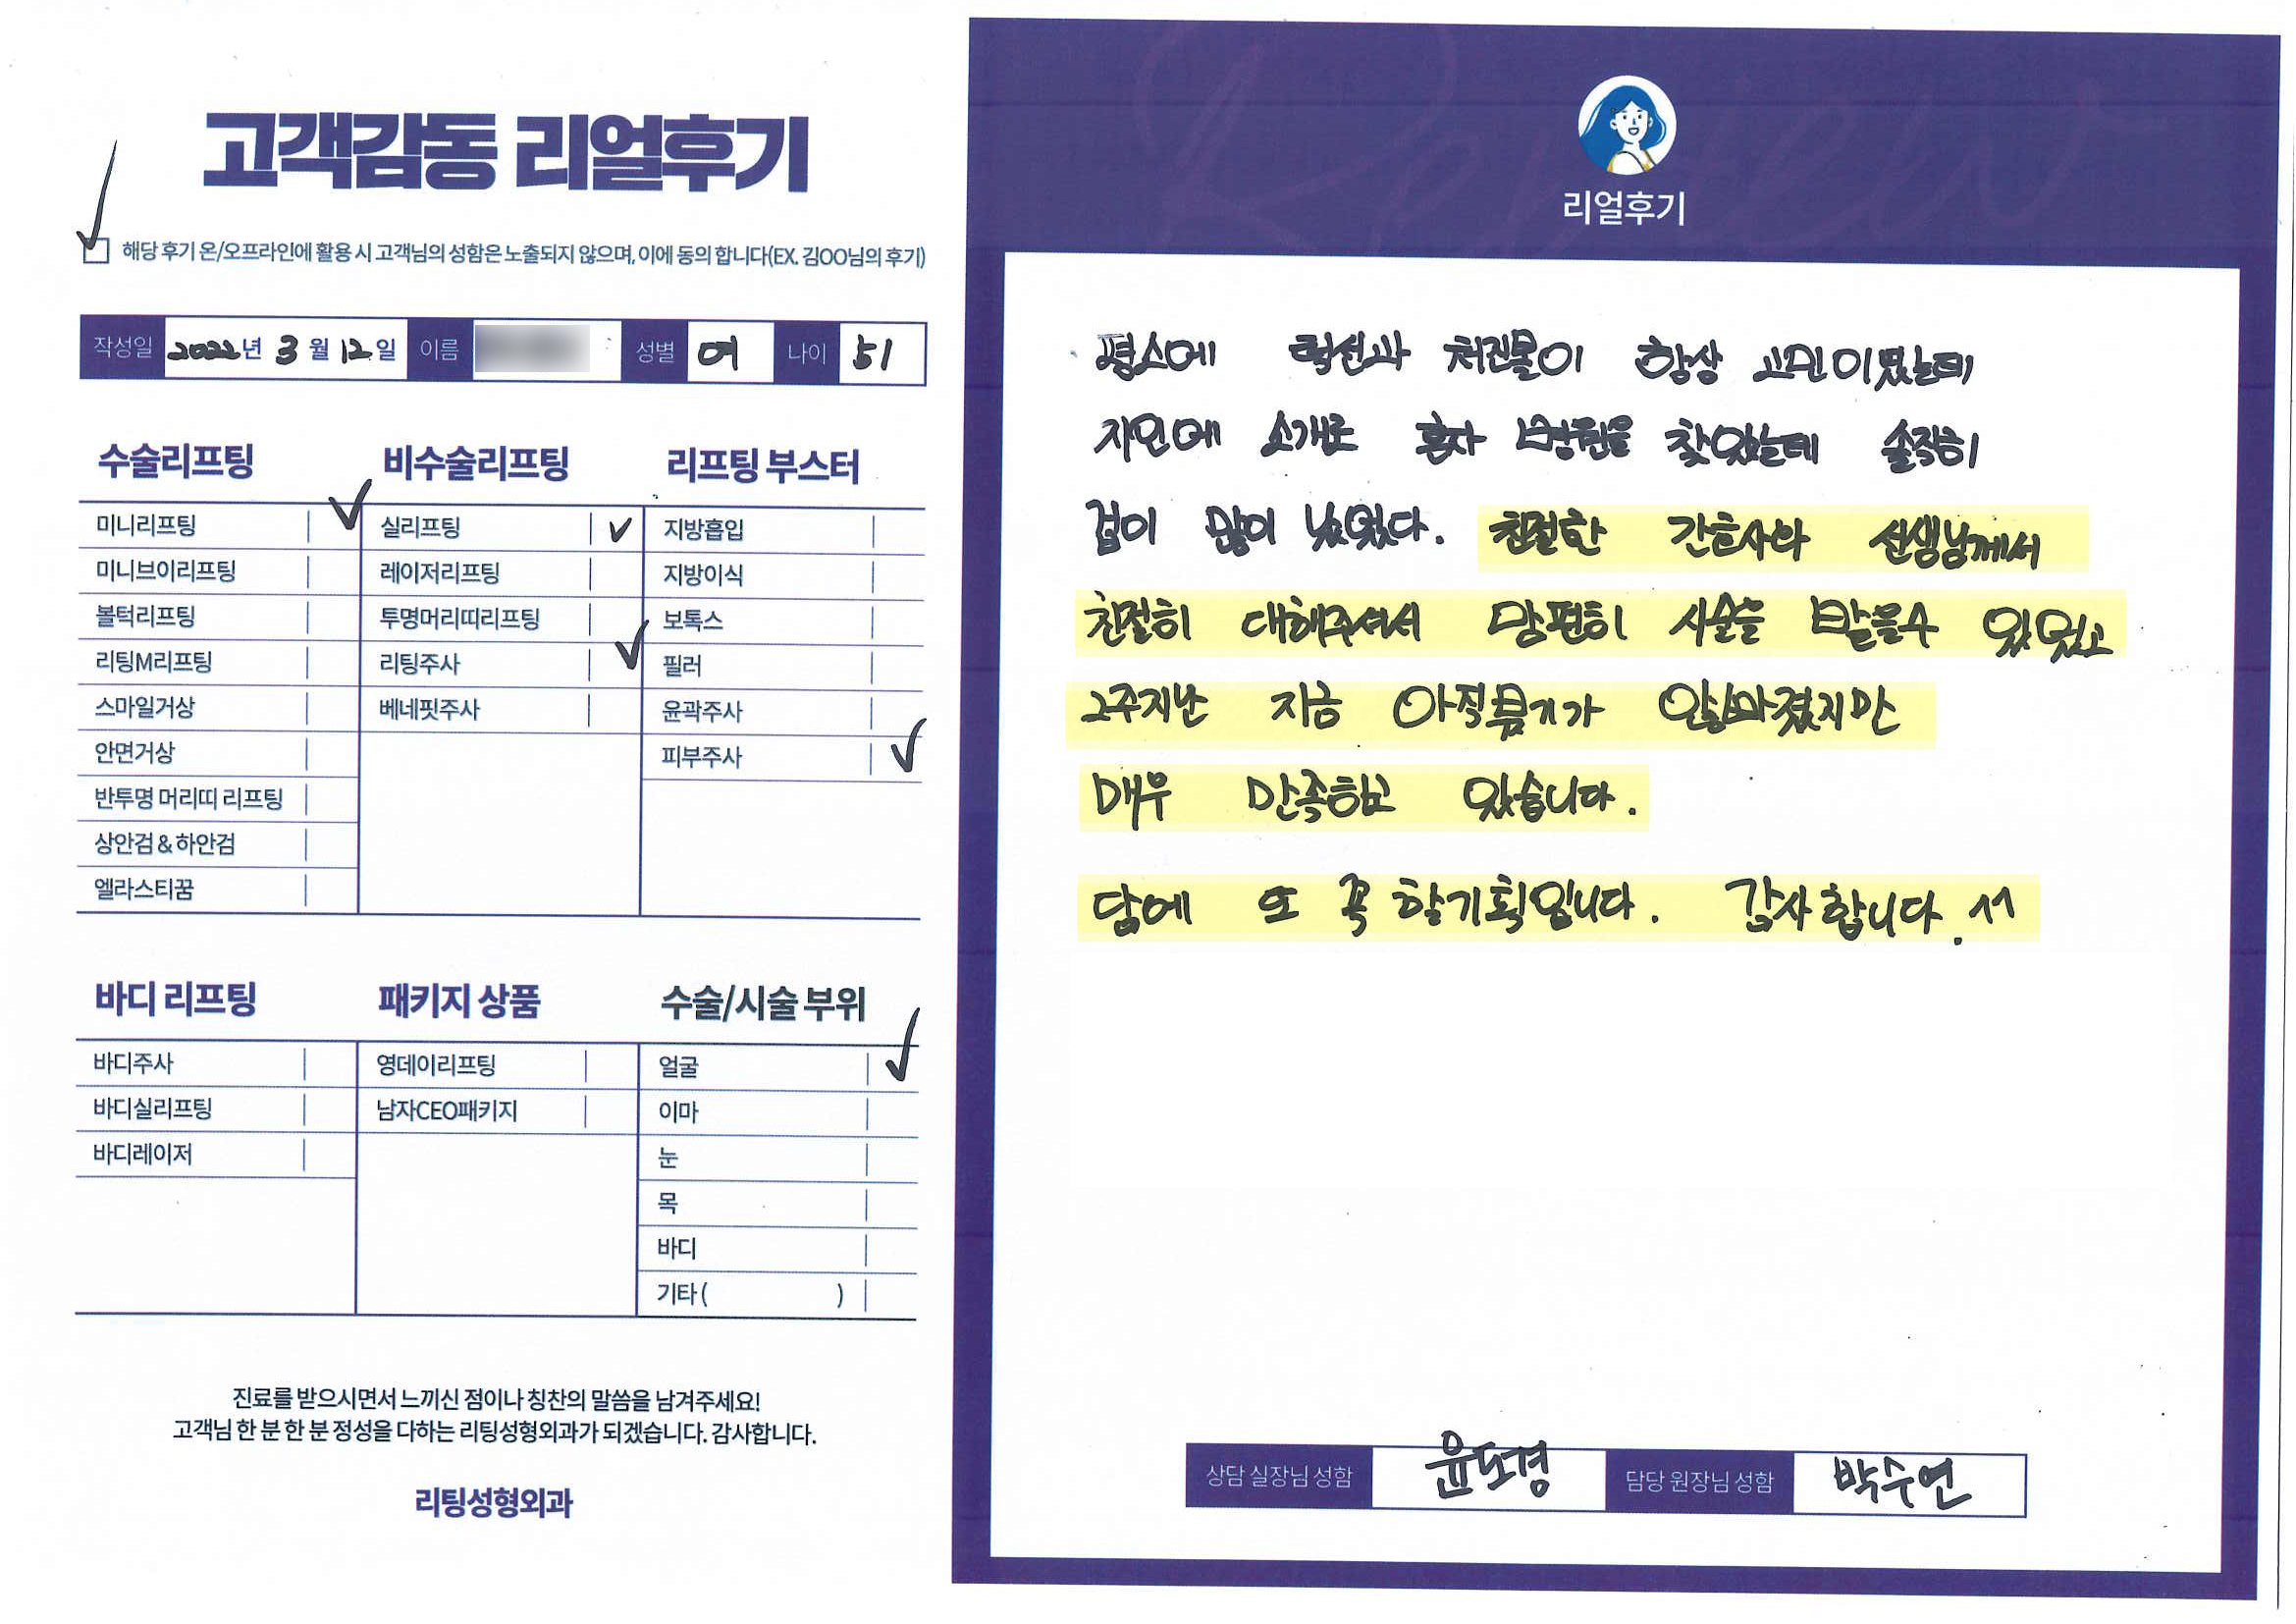 고객감동 리얼후기
해당 후기 온/오프라인에 활용 시 고객님의 성함은 노출되지 않으며, 이에 동의 합니다(EX. 김OO님의 후기)
작성일 2022년 3월 12일 이름 성별 여 나이 51
수술리프팅
미니리프팅
미니브이리프팅
볼턱리프팅
리팅M리프팅
스마일거상
안면거상
반투명 머리띠 리프팅
상안검&하안검
엘라스티꿈
비수술리프팅
실리프팅
레이저리프팅
투명머리띠리프팅
리팅주사
베네핏주사
리프팅 부스터
지방흡입
지방이식
보톡스
필러
윤곽주사
피부주사
바디 리프팅
바디주사
바디실리프팅
바디레이저
패키지 상품
영데이리프팅
남자CEO패키지
수술/시술 부위
얼굴
이마
눈
목
바디
기타( )
진료를 받으시면서 느끼신 점이나 칭찬의 말씀을 남겨주세요!
고객님 한 분 한 분 정성을 다하는 리팅성형외과가 되겠습니다. 감사합니다.
리팅성형외과
리얼후기
평소에 턱선과 처진볼이 항상 고민이였는데
지인에 소개로 혼자 병원을 찾았는데 솔직히
겁이 많이 났었다. 친절한 간호사와 선생님께서
친절히 대해주셔서 맘편히 시술을 받을수 있었고
2주지난 지금 아직붓기가 안빠졌지만
매우 만족하고 있습니다.
담에 또 꼭 할기획입니다. 감사합니다.
상담 실장님 성함 윤도경 담당 원장님 성함 박수연